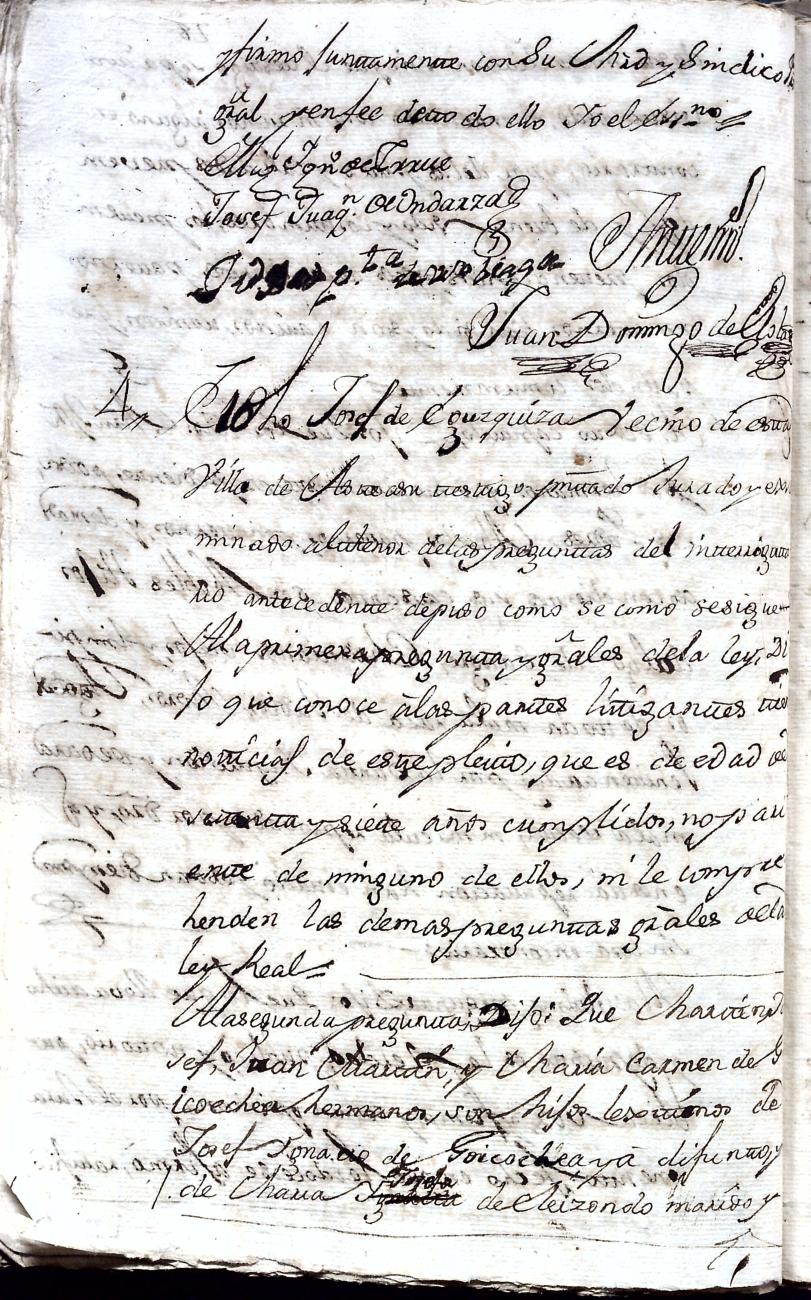 y firmo Juntamente con Su Mrd y Sindico
gral y en fee de todo ello Yo el Essno =
Mig.l Ign.o de Iraue
Josef Juaq.n de Undarza
p.ta de
Ante mi
Juan Domingo de
4 T.go Josef de Eguzquiza Vecino de esta
Villa de testigo presentado Jurado y exa
minado al thenor de las preguntas del interrogato
rio antecedente depuso como se como se sigue
A la primera pregunta y grâles de la ley, Di
jo que conoce â las partes litigantes tiene
noticias de este pleito, que es de edad de
setenta y siete años cumplidos, no pari
ente de ninguno de ellos, ni le compre
henden las demas preguntas grâles de la
ley Real =
A la segunda pregunta; Dijo: Que Martin Jo
sef, Juan Martin, y Maria Carmen de G
oicoechea hermanos, son hijos lexitimos de
Josef Ignacio de Goicoechea ya difunto, y
de Maria Josefa de Elizondo marido y